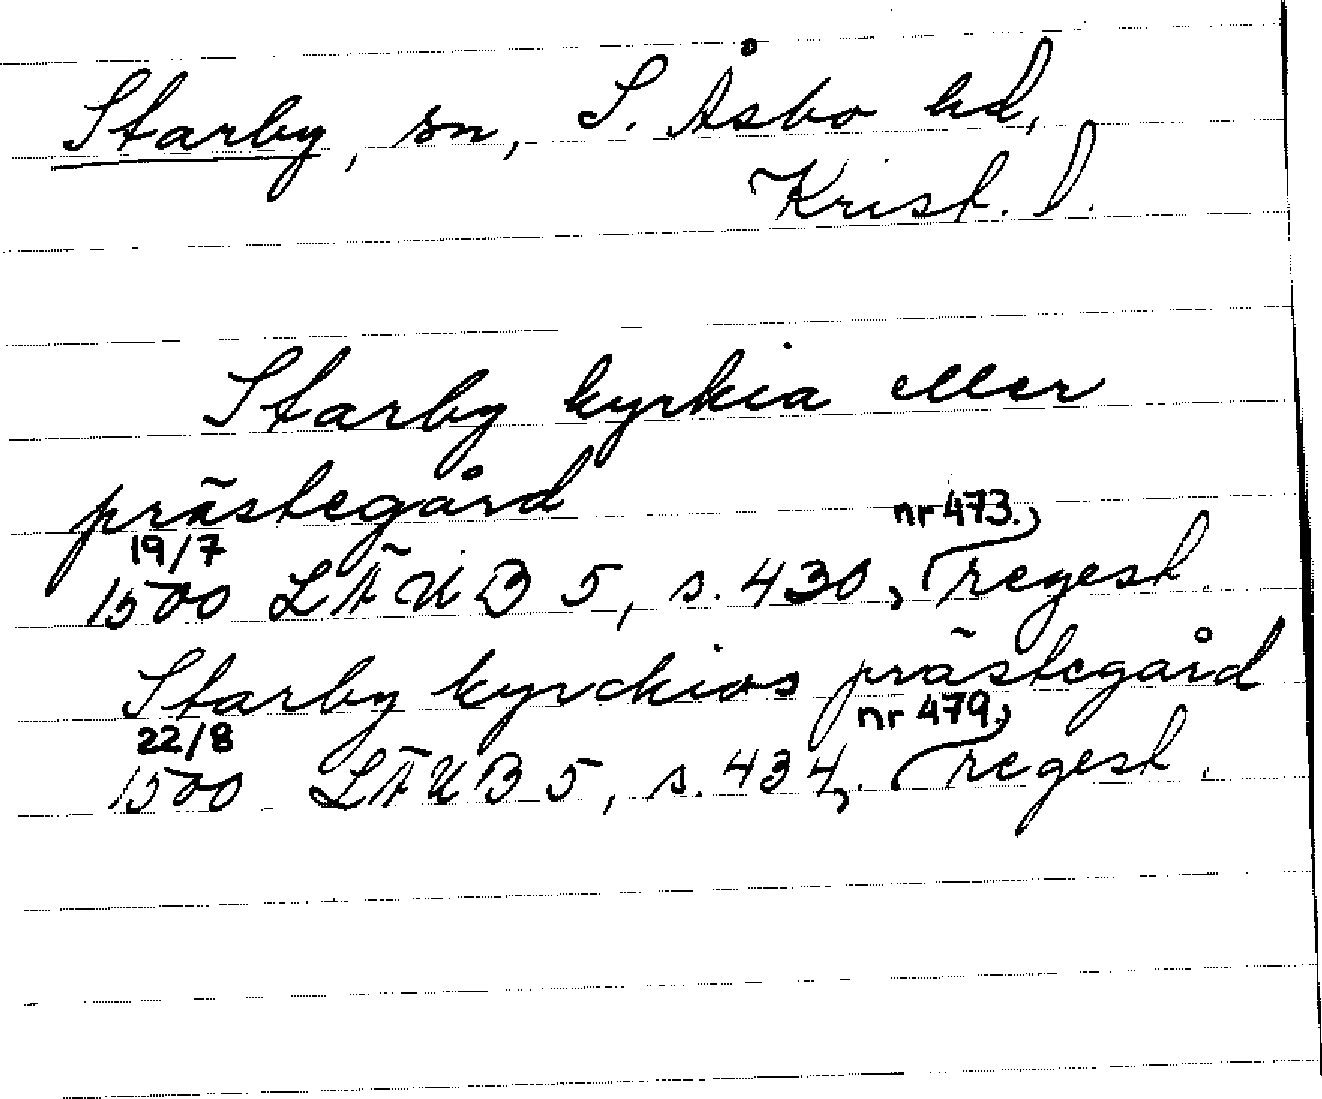 Starby, sn, S. Åsbo hd,
Krist. l.
Starby kyrkia eller
prästegård
19/7 nr 473.
1500 LÄUB 5, s. 430, regest.
Starby kyrckios prästegård
22/8 nr 479,
1500 LÄUB 5, s. 434, regest.